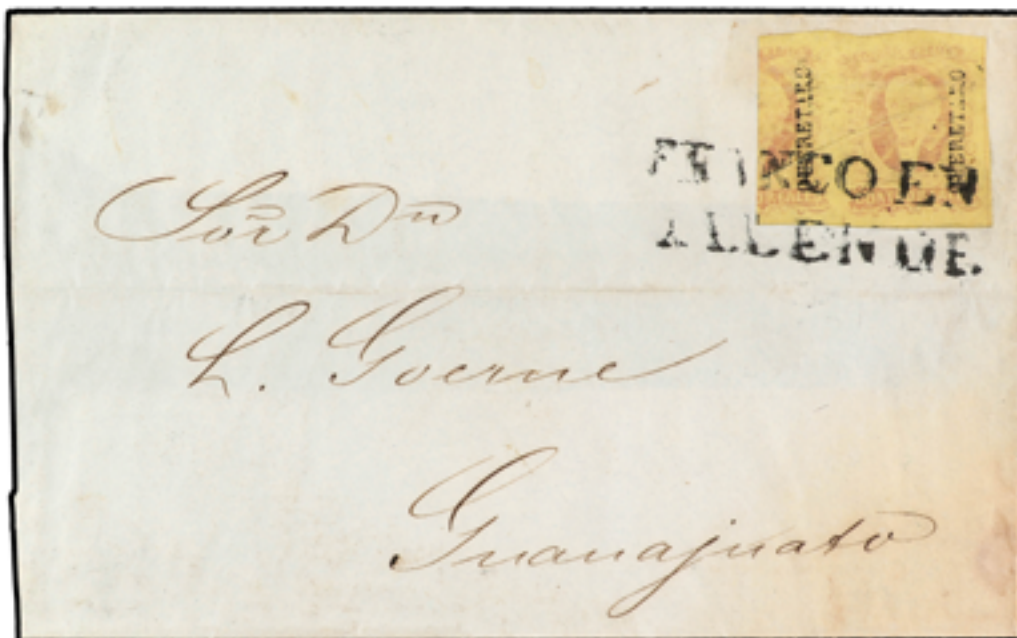 QUERETARO
QUERETARO
FRANCO EN
ALLENDE.
Sōr Dn̄
L. Goerne
Guanajuato